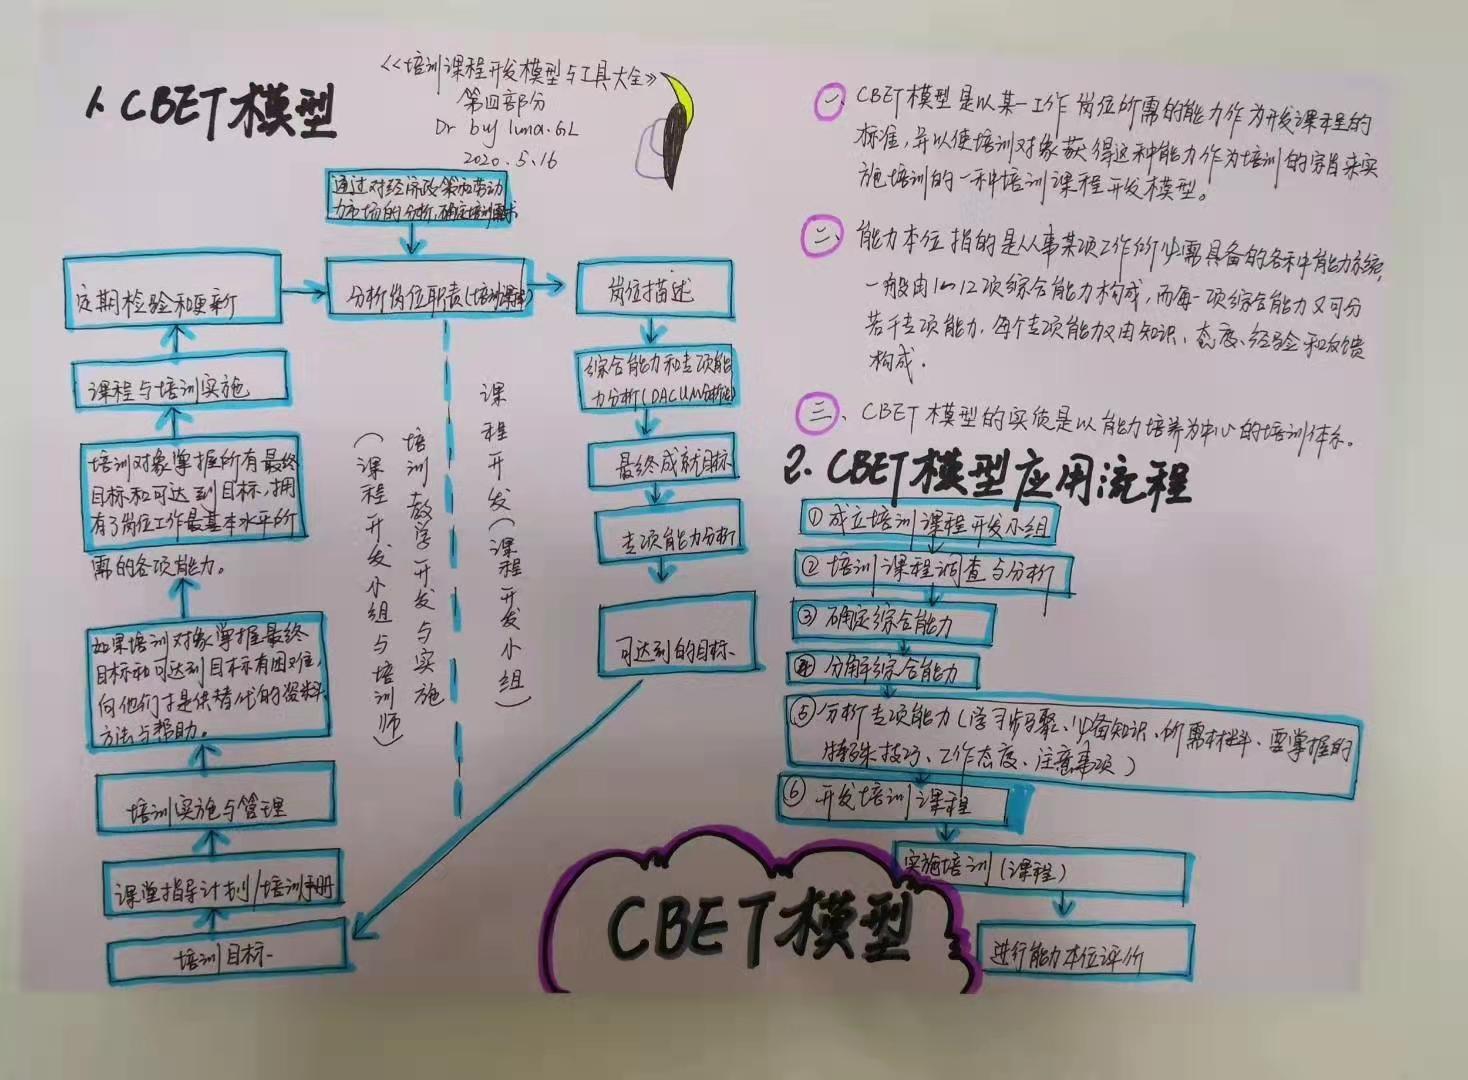 1. CBET模型
<<培训课程开发模型与工具大全>>
第四部分
Dr by luna.GL
2020.5.16
通过对经济政策和劳动
力市场的分析,确定培训需求
分析岗位职责(培训课程)
岗位描述
综合能力和专项能
力分析(DACUM分析法)
最终成就目标
专项能力分析
可达到的目标
课程开发(课程开发小组)
培训教学开发与实施
(课程开发小组与培训师)
定期检验和更新
课程与培训实施
培训对象掌握所有最终
目标和可达到目标,拥
有了岗位工作最基本水平的所
需的各项能力。
如果培训对象掌握最终
目标和可达到目标有困难,
向他们提供替代的资料
方法与帮助。
培训实施与管理
课堂指导计划/培训手册
培训目标
一、CBET模型是以某一工作岗位所需的能力作为开发课程的
标准,并以使培训对象获得这种能力作为培训的宗旨来实
施培训的一种培训课程开发模型。
二、能力本位指的是从事某项工作所必需具备的各种能力系统,
一般由1~12项综合能力构成,而每一项综合能力又可分
若干专项能力,每个专项能力又由知识、态度、经验和反馈
构成.
三、CBET模型的实质是以能力培养为中心的培训体系。
2. CBET模型应用流程
①成立培训课程开发小组
②培训课程调查与分析
③确定综合能力
④分解综合能力
⑤分析专项能力(学习步骤、必备知识、所需材料、要掌握的
特殊技巧、工作态度、注意事项)
⑥开发培训课程
实施培训(课程)
进行能力本位评价
CBET模型